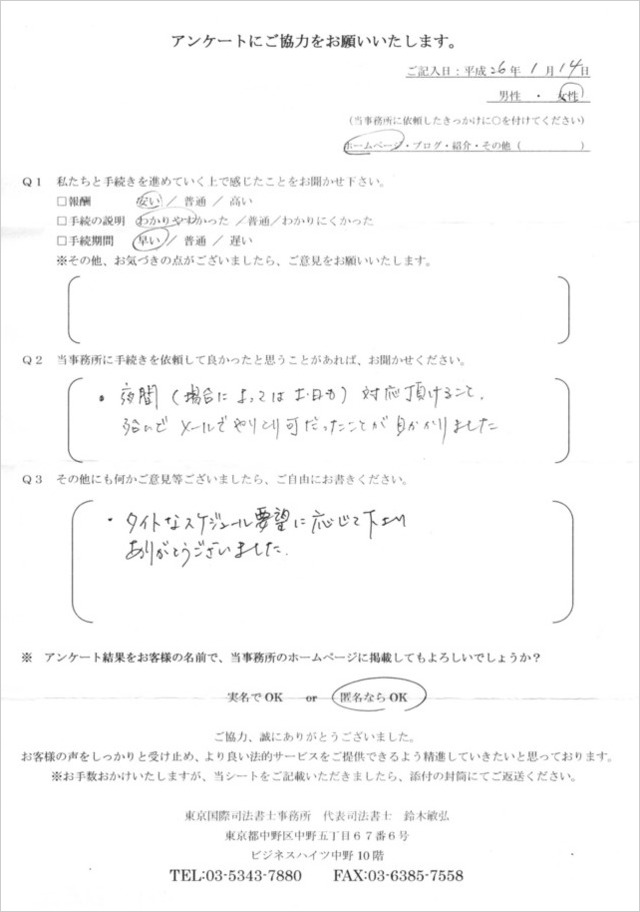 アンケートにご協力をお願いいたします。
ご記入日：平成 26 年 1 月 14 日
男性 ・ 女性
（当事務所に依頼したきっかけに○を付けてください）
ホームページ・ブログ・紹介・その他（　　　　　）
Q１ 私たちと手続きを進めていく上で感じたことをお聞かせ下さい。
□報酬 安い ／ 普通 ／ 高い
□手続の説明 わかりやすかった ／普通／わかりにくかった
□手続期間 早い ／ 普通 ／ 遅い
※その他、お気づきの点がございましたら、ご意見をお願いいたします。
Q２ 当事務所に手続きを依頼して良かったと思うことがあれば、お聞かせください。
・夜間（場合によっては土日も）対応頂けること、
メールでやりとり可だったことが助かりました
Q３ その他にも何かご意見等ございましたら、ご自由にお書きください。
・タイトなスケジュール要望に応じて下さり
ありがとうございました。
※ アンケート結果をお客様の名前で、当事務所のホームページに掲載してもよろしいでしょうか？
実名で OK or 匿名なら OK
ご協力、誠にありがとうございました。
お客様の声をしっかりと受け止め、より良い法的サービスをご提供できるよう精進していきたいと思っております。
※お手数おかけいたしますが、当シートをご記載いただきましたら、添付の封筒にてご返送ください。
東京国際司法書士事務所 代表司法書士 鈴木敏弘
東京都中野区中野五丁目６７番６号
ビジネスハイツ中野 10 階
TEL:03-5343-7880 FAX:03-6385-7558